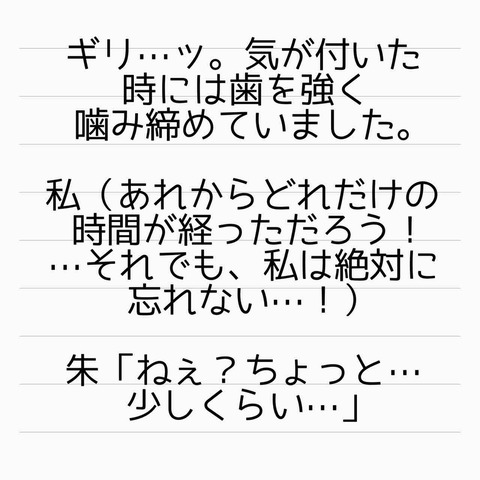 ギリ…ッ。気が付いた
時には歯を強く
噛み締めていました。
私（あれからどれだけの
時間が経っただろう！
…それでも、私は絶対に
忘れない…！）
朱「ねぇ？ちょっと…
少しくらい…」